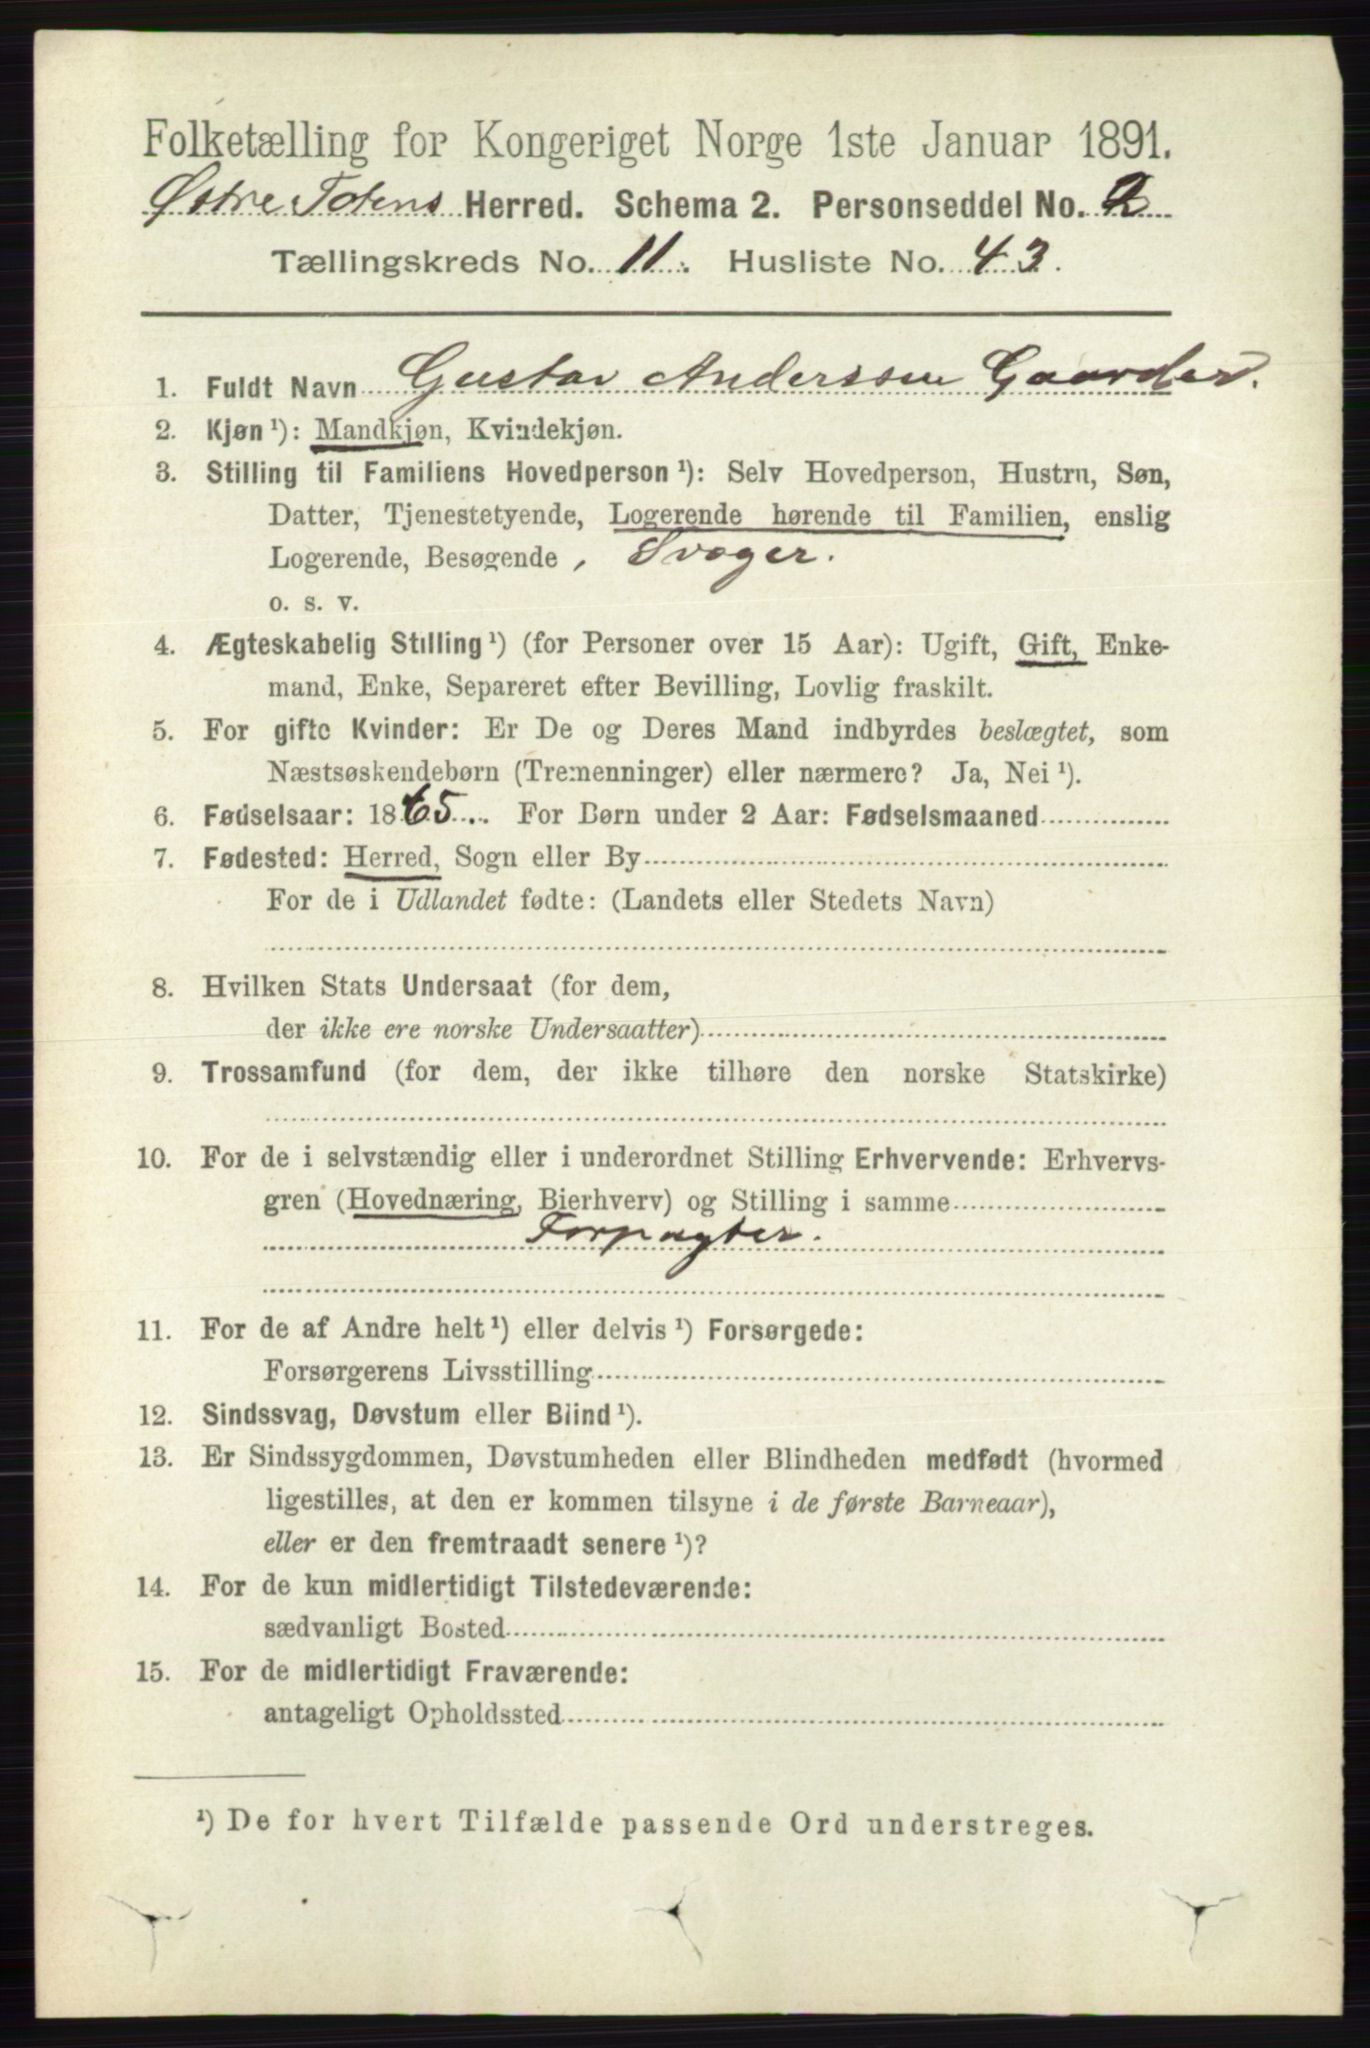 Folketælling for Kongeriget Norge 1ste Januar 1891.
Østre Totens Herred. Schema 2. Personseddel No. 2
Tællingskreds No. 11. Husliste No. 43.
1. Fuldt Navn Gustav Anderssen Gaarder.
2. Kjøn ¹): Mandkjøn, Kvindekjøn.
3. Stilling til Familiens Hovedperson ¹): Selv Hovedperson, Hustru, Søn,
Datter, Tjenestetyende, Logerende hørende til Familien, enslig
Logerende, Besøgende, Svoger.
o. s. v.
4. Ægteskabelig Stilling ¹) (for Personer over 15 Aar): Ugift, Gift, Enke-
mand, Enke, Separeret efter Bevilling, Lovlig fraskilt.
5. For gifte Kvinder: Er De og Deres Mand indbyrdes beslægtet, som
Næstsøskendebørn (Tremenninger) eller nærmere? Ja, Nei ¹).
6. Fødselsaar: 1865. For Børn under 2 Aar: Fødselsmaaned
7. Fødested: Herred, Sogn eller By
For de i Udlandet fødte: (Landets eller Stedets Navn)
8. Hvilken Stats Undersaat (for dem,
der ikke ere norske Undersaatter)
9. Trossamfund (for dem, der ikke tilhøre den norske Statskirke)
10. For de i selvstændig eller i underordnet Stilling Erhvervende: Erhvervs-
gren (Hovednæring, Bierhverv) og Stilling i samme
Forpagter.
11. For de af Andre helt ¹) eller delvis ¹) Forsørgede:
Forsørgerens Livsstilling
12. Sindssvag, Døvstum eller Blind ¹).
13. Er Sindssygdommen, Døvstumheden eller Blindheden medfødt (hvormed
ligestilles, at den er kommen tilsyne i de første Barneaar),
eller er den fremtraadt senere ¹)?
14. For de kun midlertidigt Tilstedeværende:
sædvanligt Bosted
15. For de midlertidigt Fraværende:
antageligt Opholdssted
¹) De for hvert Tilfælde passende Ord understreges.